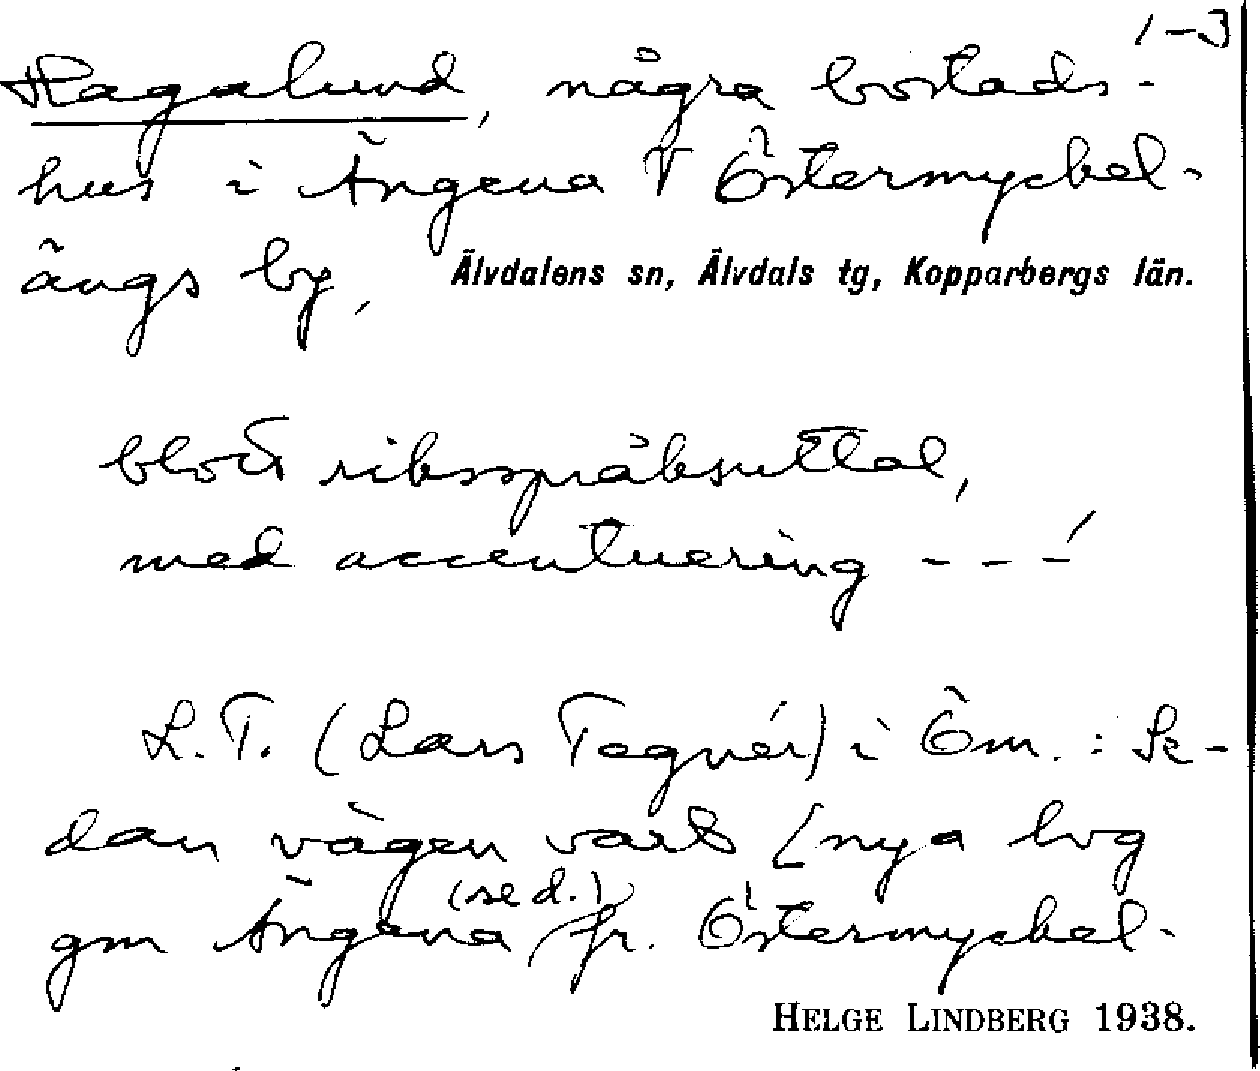 1-3
Hagalund, några bostads-
hus i Ängena V Östermyckel-
ängs by, Älvdalens sn, Älvdals tg, Kopparbergs län.
blott riksspråksuttal,
med accentuering - - -́
L. T. (Lars Tegnér) i Öm. : Se-
dan vägen vart [nya lvg
gm Ängena (se d.) fr. Östermyckel-
HELGE LINDBERG 1938.